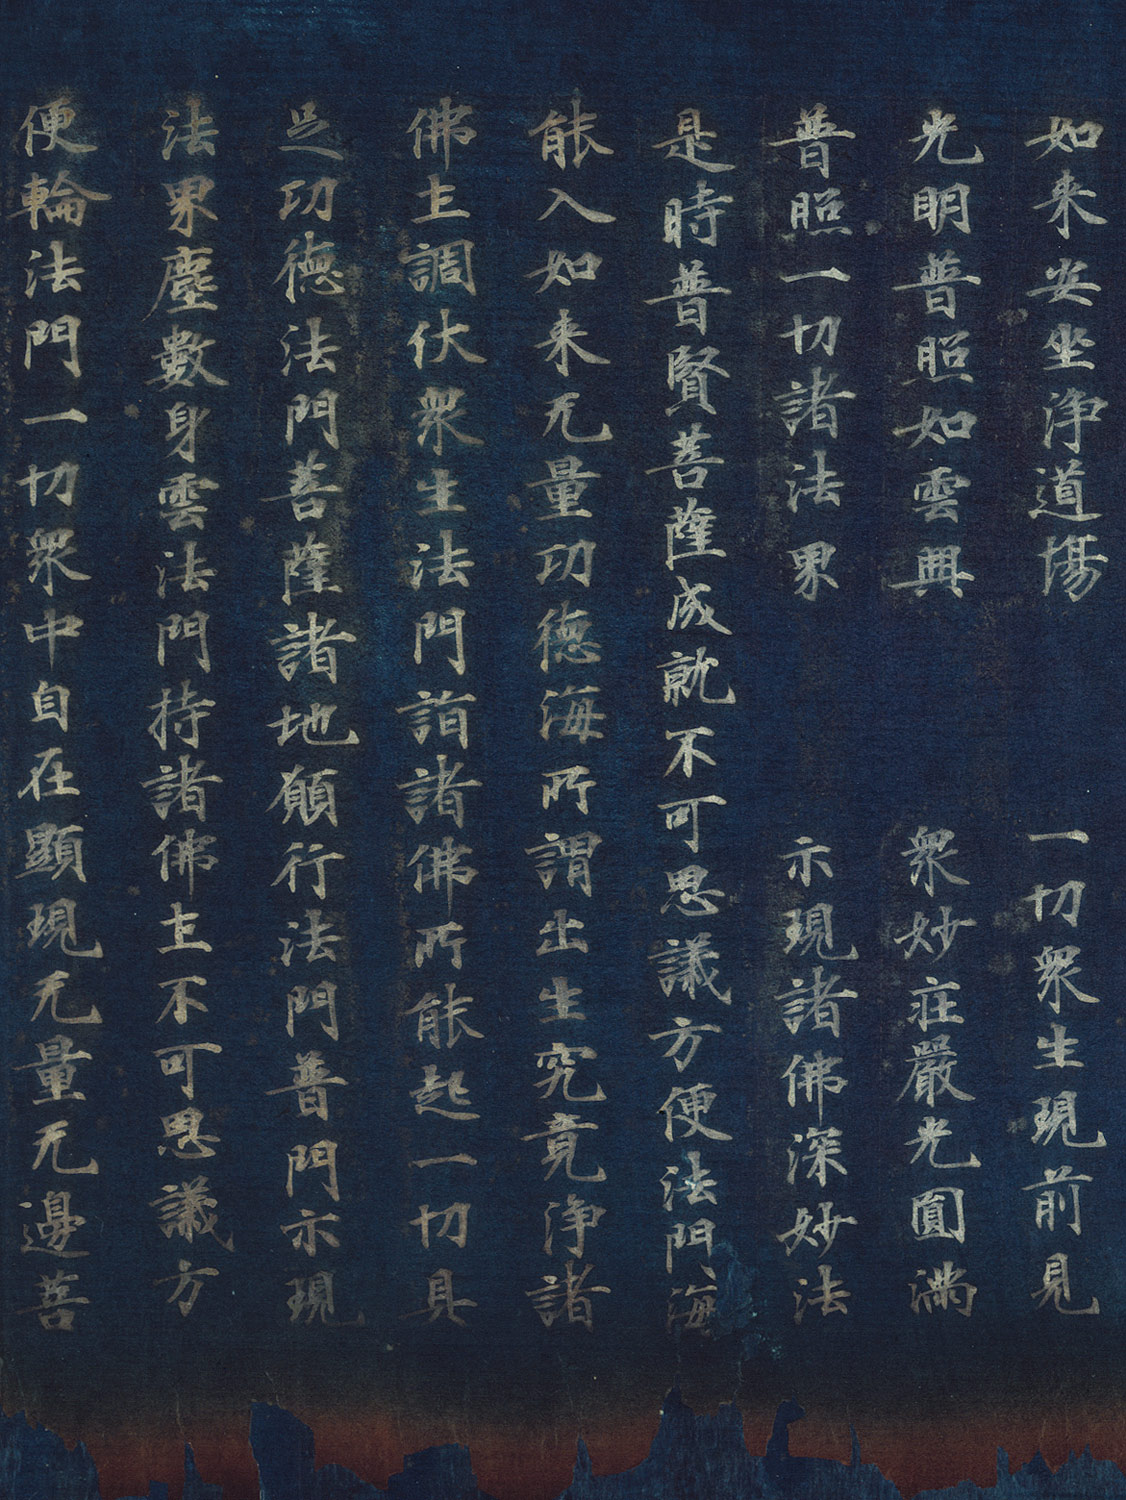 如来安坐浄道場　一切衆生現前見
光明普照如雲興　衆妙莊嚴光圓滿
普照一切諸法界　示現諸佛深妙法
是時普賢菩薩成就不可思議方便法門海
能入如来无量功徳海所謂出生究竟浄諸
佛土調伏衆生法門詣諸佛所能起一切具
足功徳法門菩薩諸地願行法門普門示現
法界塵數身雲法門持諸佛土不可思議方
便輪法門一切衆中自在顯現无量无邊菩